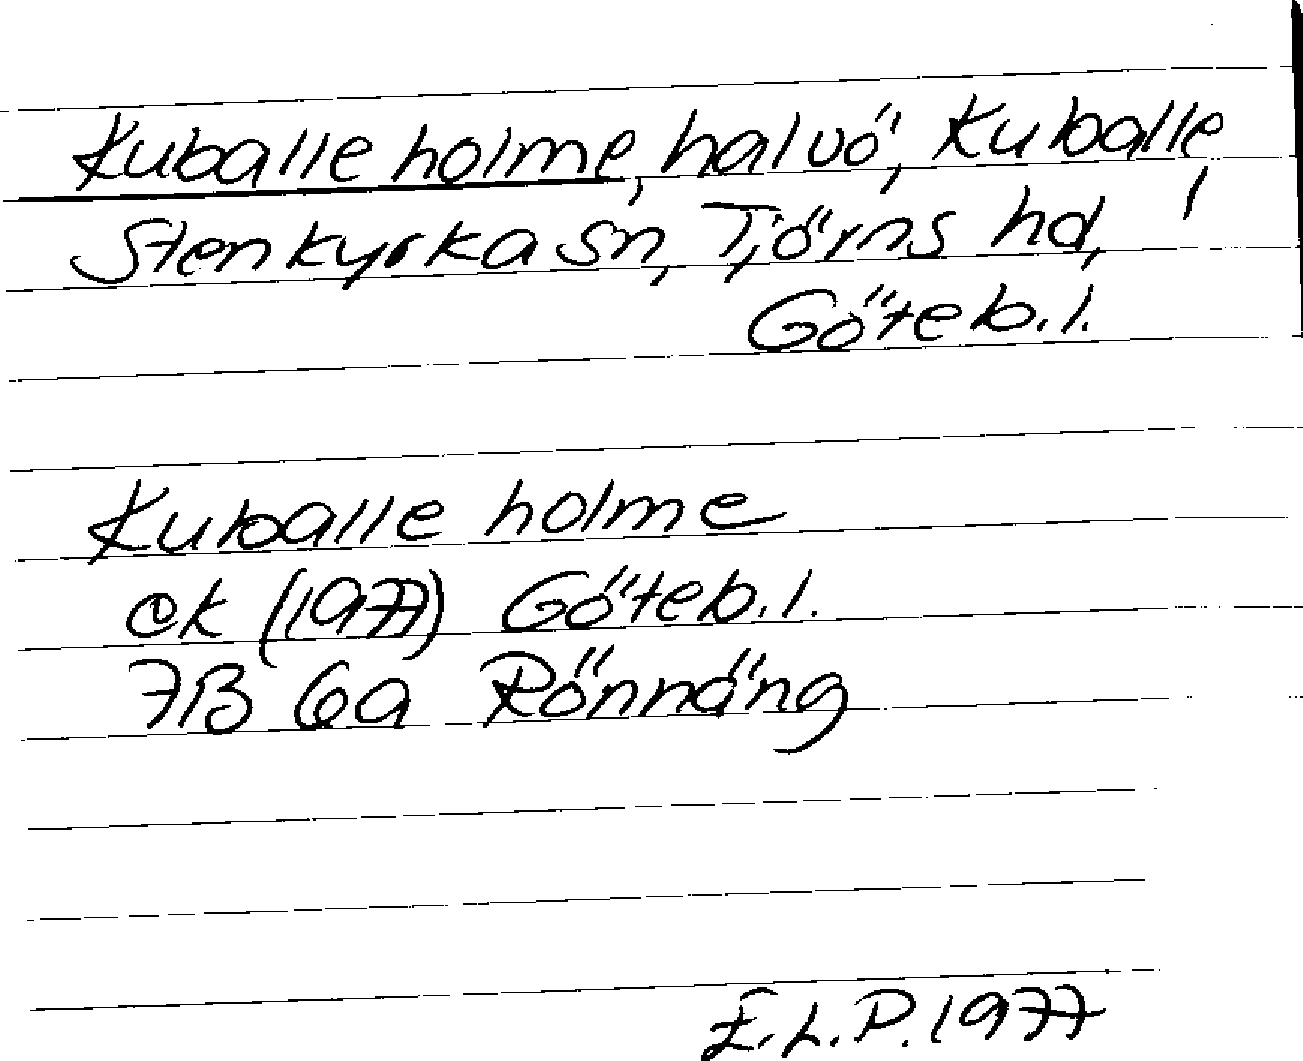 Kuballe holme, halvö, Kuballe,
Stenkyrka sn, Tjörns hd,
Göteb. l.
Kuballe holme
ek (1977) Göteb. l.
7B 6a Rönnäng
E.L.P. 1977